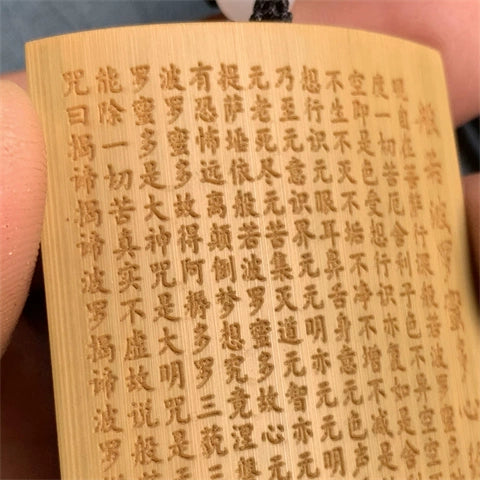 般若波罗蜜多心经
观自在菩萨行深般若波罗蜜多
度一切苦厄舍利子色不异空空
空即是色受想行识亦复如是舍
不生不灭不垢不净不增不减是
想行识元眼耳鼻舌身意元色声
乃至元意识界元元明亦元元明
元老死尽元苦集灭道元智亦元
提萨埵依般若波罗蜜多故心元
有恐怖远离颠倒梦想究竟涅槃
波罗蜜多故得阿耨多罗三藐三
罗蜜多是大神咒是大明咒是元
能除一切苦真实不虚故说般
咒曰揭谛揭谛波罗揭谛波罗